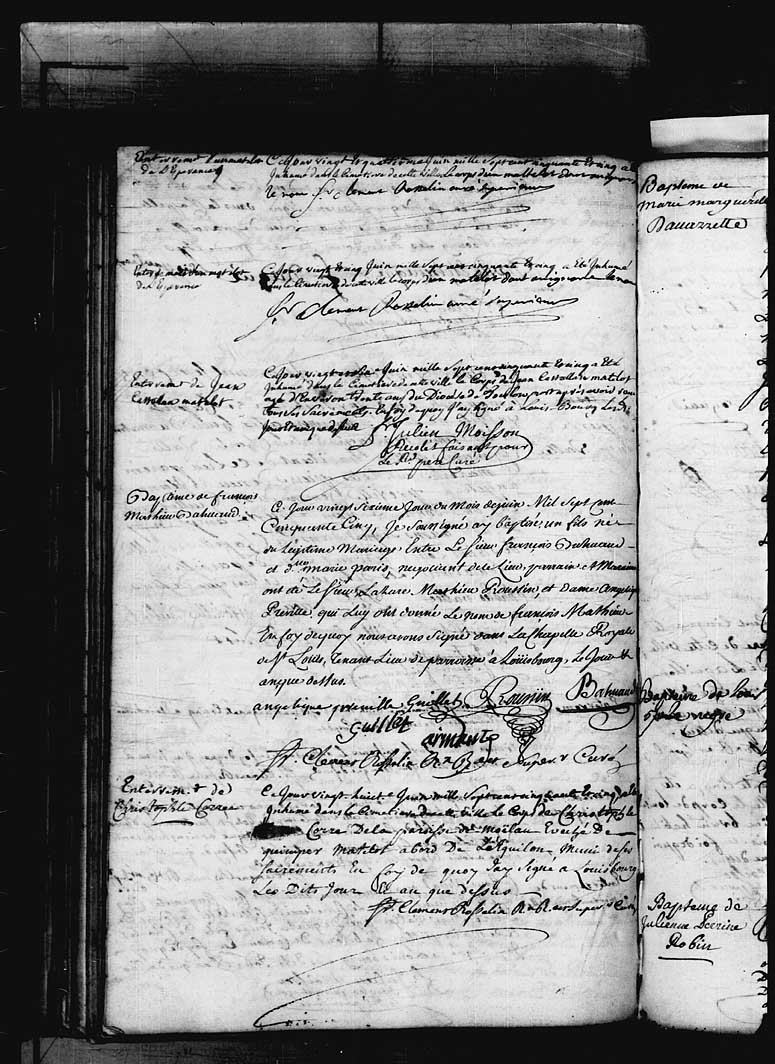 Enterrement d'un matelot
de L'Esperance
Ce Jour vingt et quatrieme Juin mille Sept cent cinquante et cinq a été
Inhumé dans le Cimetiere de cette ville Le corps d'un mattelot dont on ignore
le nom fr. Clement Rosselin ancien Superieur
Enterrement d'un matelot
de L'Esperance
Ce Jour vingt et cinq Juin mille Sept cent cinquante et cinq a Eté Inhumé
dans le Cimetiere de cette ville le corps d'un matelot dont on ignore le nom
fr. Clement Rosselin Superieur
Enterremt de Jean
matelot
Ce Jour vingt Juin mille Sept cent cinquante et cinq a Eté
Inhumé dans le Cimetiere de cette ville le Corps de Jean matelot
agé d'Environ trente ans du Diocèse de mort après avoir reçu
tous ses Sacrements, En foy de quoy J'ay signé à Louis Bourg Les dits
Jour et an que dessus
fr Julien Moisson
Recolet faisant pour
Le Rd pere Curé
Baptême de francois
Mathieu Bahuaud
Ce Jour vingt Sixieme Jour du Mois de juin Mil Sept Cent
Cinquante Cinq, Je Soussigné ay baptisé un fils né
du Legitime Mariage Entre Le Sieur francois Bahuaud
et dlle marie paris, negocient de ce Lieu, parrain et Maraine
ont été Le Sieur Lazare Mathieu Roustin et Dame Angelique
Preville, qui Luy ont donné Le nom de francois Mathieu
En foy de quoy nous avons Signé dans La Chapelle Royale
de St Louis, Tenant Lieu de parroisse à Louisbourg, Le Jour et
an que dessus.
angelique prenille Guillet Roustin Bahuaud
Guillet
fr. Clemens Rosselin Superr Curé
Enterremt de
Christophle Corre
Ce Jour vingt huit e Juin mille Sept cent cinquante et cinq a Eté
Inhumé dans le Cimetiere de cette ville le Corps de Christophle
Corre De la paroisse de moëlan Eveché De
quimper Matelot a bord De L'Aquilon Muni de ses
sacrements En foy de quoy Jay Signé a Louisbourg
Les Dits Jour Et an que dessus
fr. Clemens Rosselin Superr Curé
Bapteme de
Marie marguerite
Dauazzette
Bapteme de Loui
negre
Bapteme de
Julienne Perrine
Robin